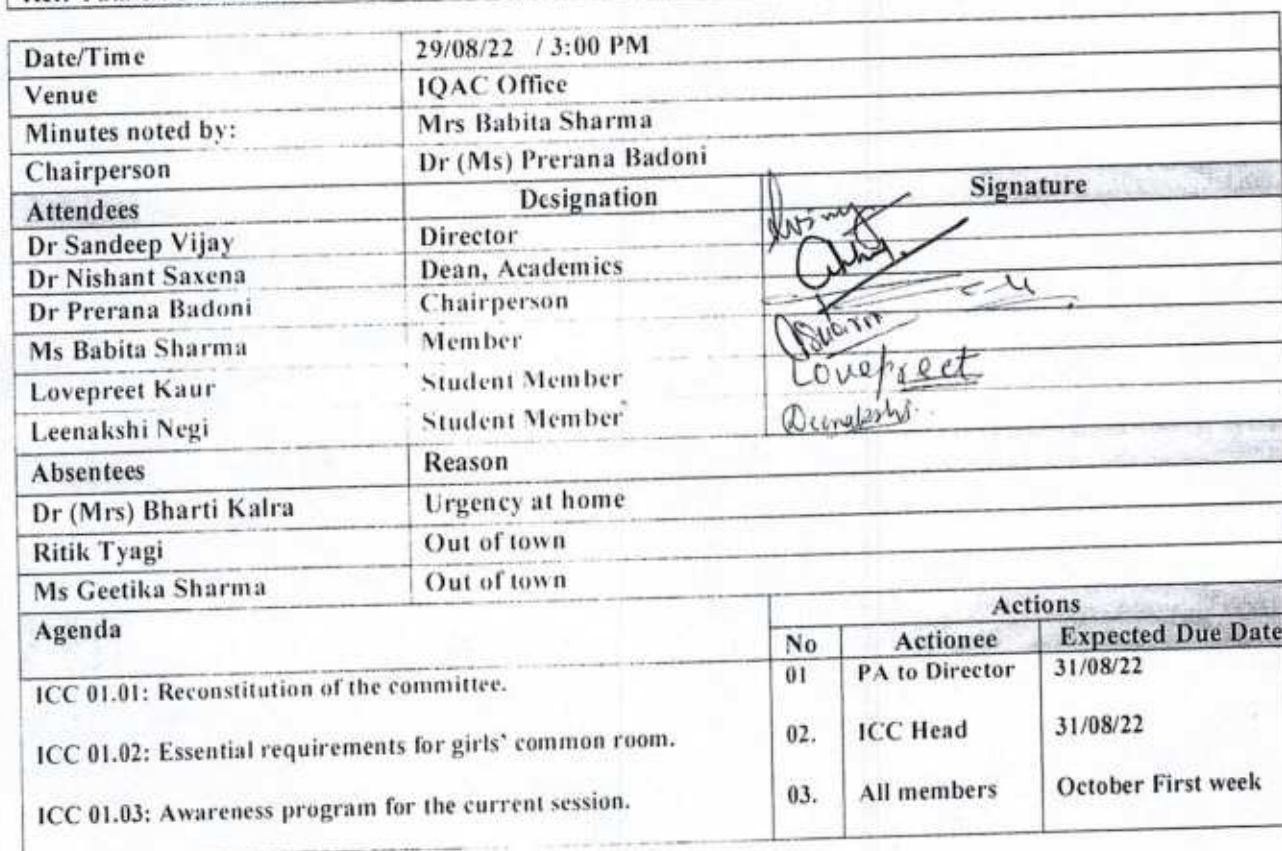 Date/Time 29/08/22 / 3:00 PM
Venue IQAC Office
Minutes noted by: Mrs Babita Sharma
Chairperson Dr (Ms) Prerana Badoni
Attendees Designation Signature
Dr Sandeep Vijay Director
Dr Nishant Saxena Dean, Academics
Dr Prerana Badoni Chairperson
Ms Babita Sharma Member
Lovepreet Kaur Student Member Lovepreet
Leenakshi Negi Student Member
Absentees Reason
Dr (Mrs) Bharti Kalra Urgency at home
Ritik Tyagi Out of town
Ms Geetika Sharma Out of town
Agenda Actions
No Actionee Expected Due Date
ICC 01.01: Reconstitution of the committee. 01 PA to Director 31/08/22
ICC 01.02: Essential requirements for girls' common room. 02. ICC Head 31/08/22
ICC 01.03: Awareness program for the current session. 03. All members October First week